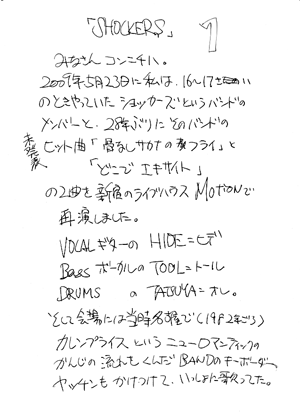 「SHOCKERS」 1
みなさん コンニチハ。
2009年5月23日に私は、16〜17さい
のときやっていた ショッカーズというバンドの
メンバーと、28年ぶりにそのバンドの
未発表
ヒット曲「骨なしサカナの夜フライ」と
「どこでエキサイト」
の2曲を新宿のライブハウス MOTIONで
再演しました。
VOCALギターの HIDE=ヒデ
Bass ボーカルの TOOL=トール
DRUMS の TATSUYA=オレ。
そして会場には当時名雄で(1982年ごろ)
カレンプライス というニューロマンティックの
かんじの 流れをくんだ BANDのキーボーダー、
ヤッチンも かけつけて、いっしょに歌ってた。